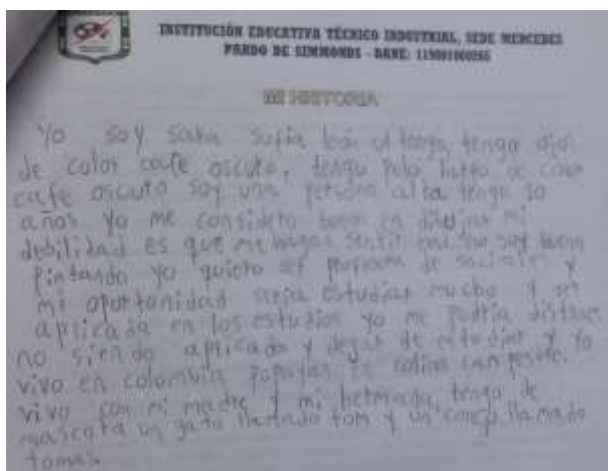 INSTITUCIÓN EDUCATIVA TÉCNICO INDUSTRIAL, SEDE MERCEDES
PARDO DE SIMMONDS - DANE:
MI HISTORIA
Yo soy Sara Sofia tengo ojos
de color cafe oscuro, tengo pelo largo de color
cafe oscuro soy una persona alta tengo 10
años Yo me considero buena en dibujar mi
debilidad es que me hagan sentir mal no soy buena
Pintando yo quiero ser profesora de sociales y
mi oportonidad seria estudiar mucho y ser
aplicada en los estudios yo me podria distraer
no siendo aplicada y dejar de estudiar y Yo
vivo en colombia Popayan en colina campestre.
vivo con mi madre y mi hermana, tengo de
mascota un gato llamado tom y un conejo llamado
tomas.